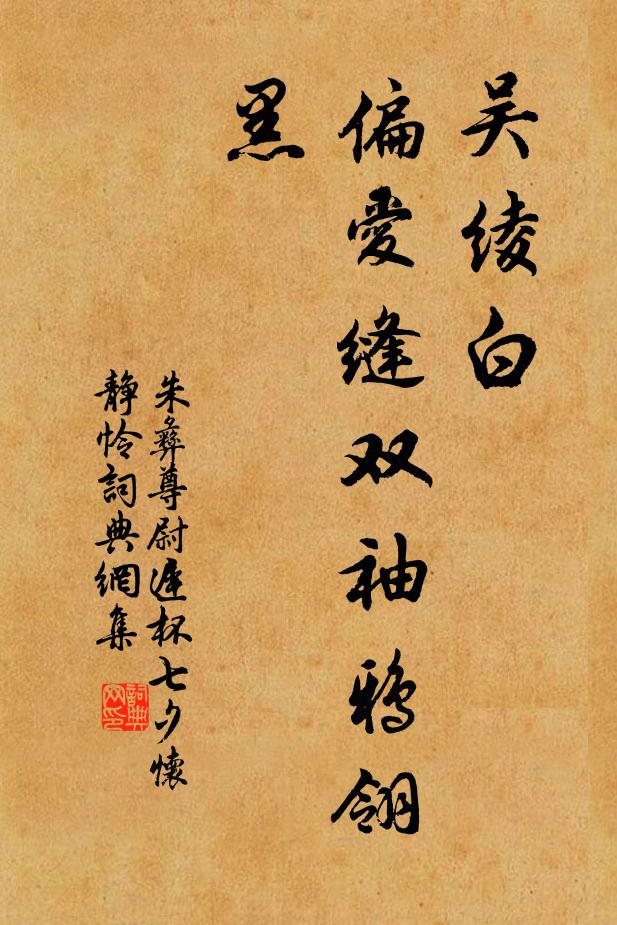 吴绫白
偏爱缝双袖鸦翎
黑
朱彝尊尉遲杯七夕懷
静怜詞典網集
詞典
网印